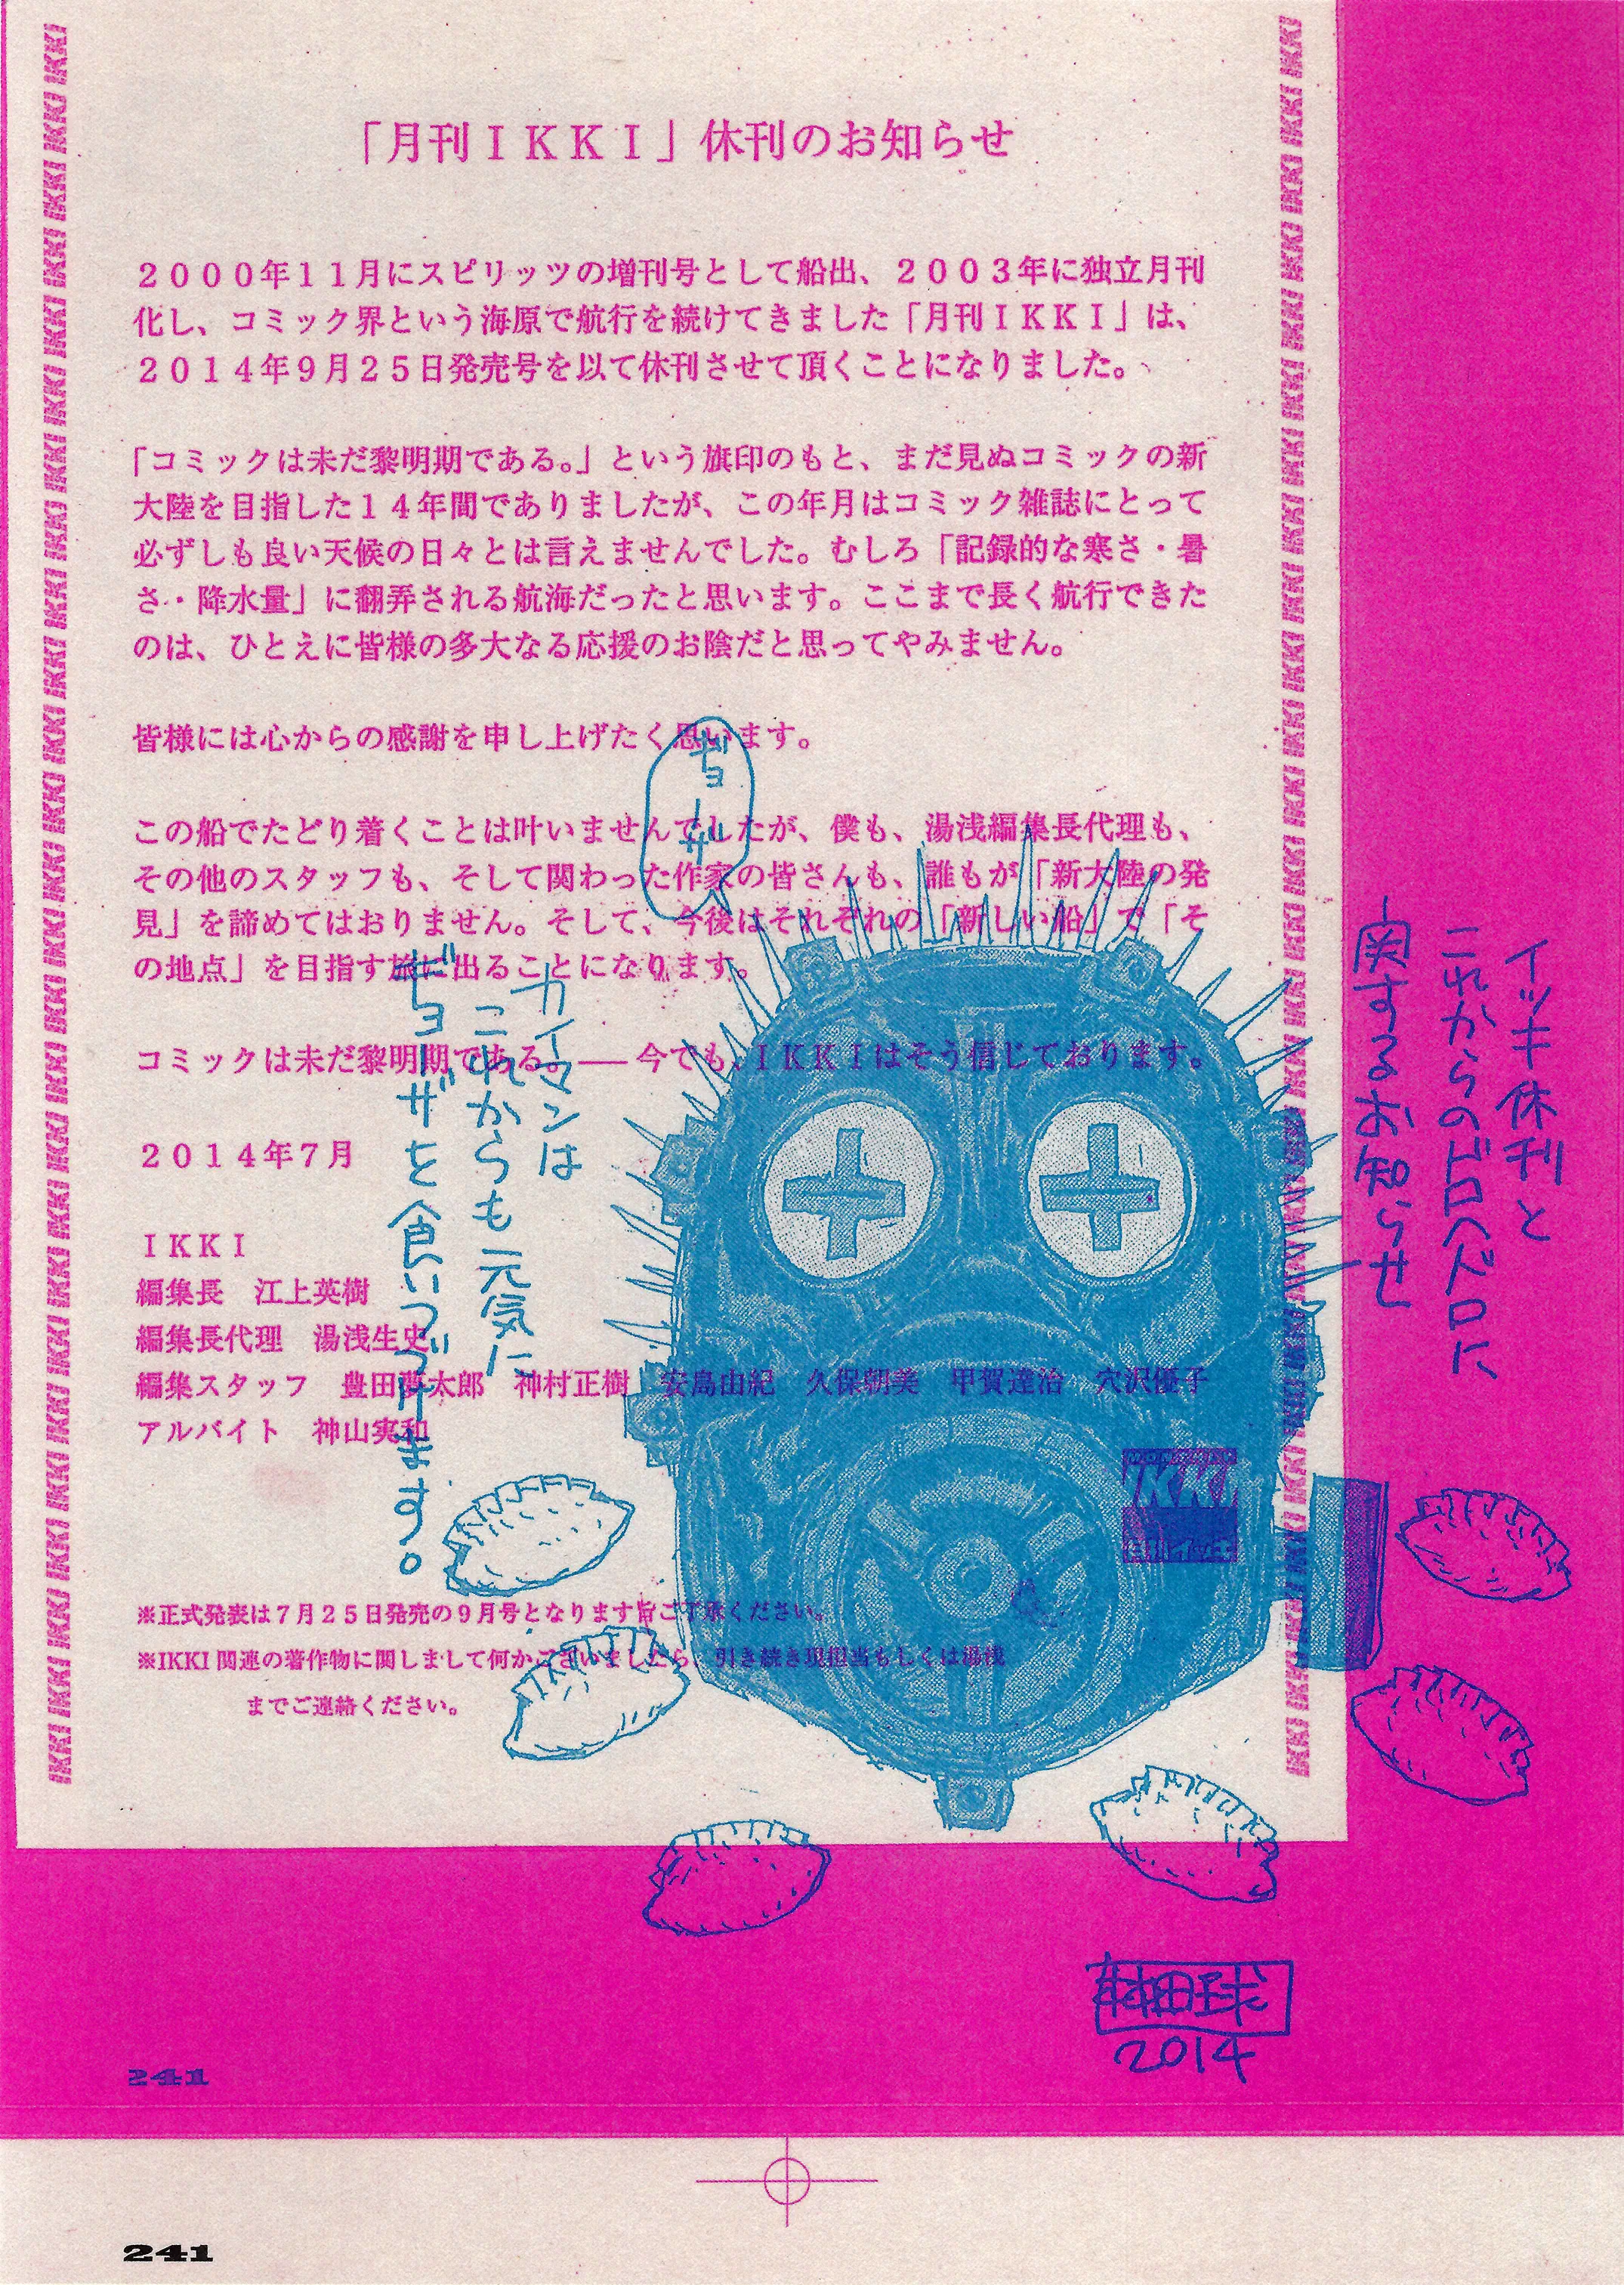 「月刊ＩＫＫＩ」休刊のお知らせ
２０００年１１月にスピリッツの増刊号として船出、２００３年に独立月刊
化し、コミック界という海原で航行を続けてきました「月刊ＩＫＫＩ」は、
２０１４年９月２５日発売号を以て休刊させて頂くことになりました。
「コミックは未だ黎明期である。」という旗印のもと、まだ見ぬコミックの新
大陸を目指した１４年間でありましたが、この年月はコミック雑誌にとって
必ずしも良い天候の日々とは言えませんでした。むしろ「記録的な寒さ・暑
さ・降水量」に翻弄される航海だったと思います。ここまで長く航行できた
のは、ひとえに皆様の多大なる応援のお陰だと思ってやみません。
皆様には心からの感謝を申し上げたく思います。
この船でたどり着くことは叶いませんでしたが、僕も、湯浅編集長代理も、
その他のスタッフも、そして関わった作家の皆さんも、誰もが「新大陸の発
見」を諦めてはおりません。そして、今後はそれぞれの「新しい船」で「そ
の地点」を目指す旅に出ることになります。
コミックは未だ黎明期である。――今でも、ＩＫＫＩはそう信じております。
２０１４年７月
ＩＫＫＩ
編集長　江上英樹
編集長代理　湯浅生史
編集スタッフ　豊田夢太郎　神村正樹　安島由紀　久保朝美　甲賀達治　穴沢優子
アルバイト　神山実和
※正式発表は７月２５日発売の９月号となります旨ご了承ください。
※IKKI 関連の著作物に関しまして何かございましたら、引き続き現担当もしくは湯浅
までご連絡ください。
イッキ休刊と
これからのドロヘドロに
関するお知らせ
ギョーザ
カイマンは
これからも元気に
ギョーザを食いつづけます。
IKKI
月刊イッキ
林田球
2014
241
241
IKKI IKKI IKKI IKKI IKKI IKKI IKKI IKKI IKKI IKKI IKKI IKKI IKKI IKKI IKKI IKKI IKKI IKKI IKKI IKKI IKKI IKKI IKKI IKKI IKKI
IKKI IKKI IKKI IKKI IKKI IKKI IKKI IKKI IKKI IKKI IKKI IKKI IKKI IKKI IKKI IKKI IKKI IKKI IKKI IKKI IKKI IKKI IKKI IKKI IKKI